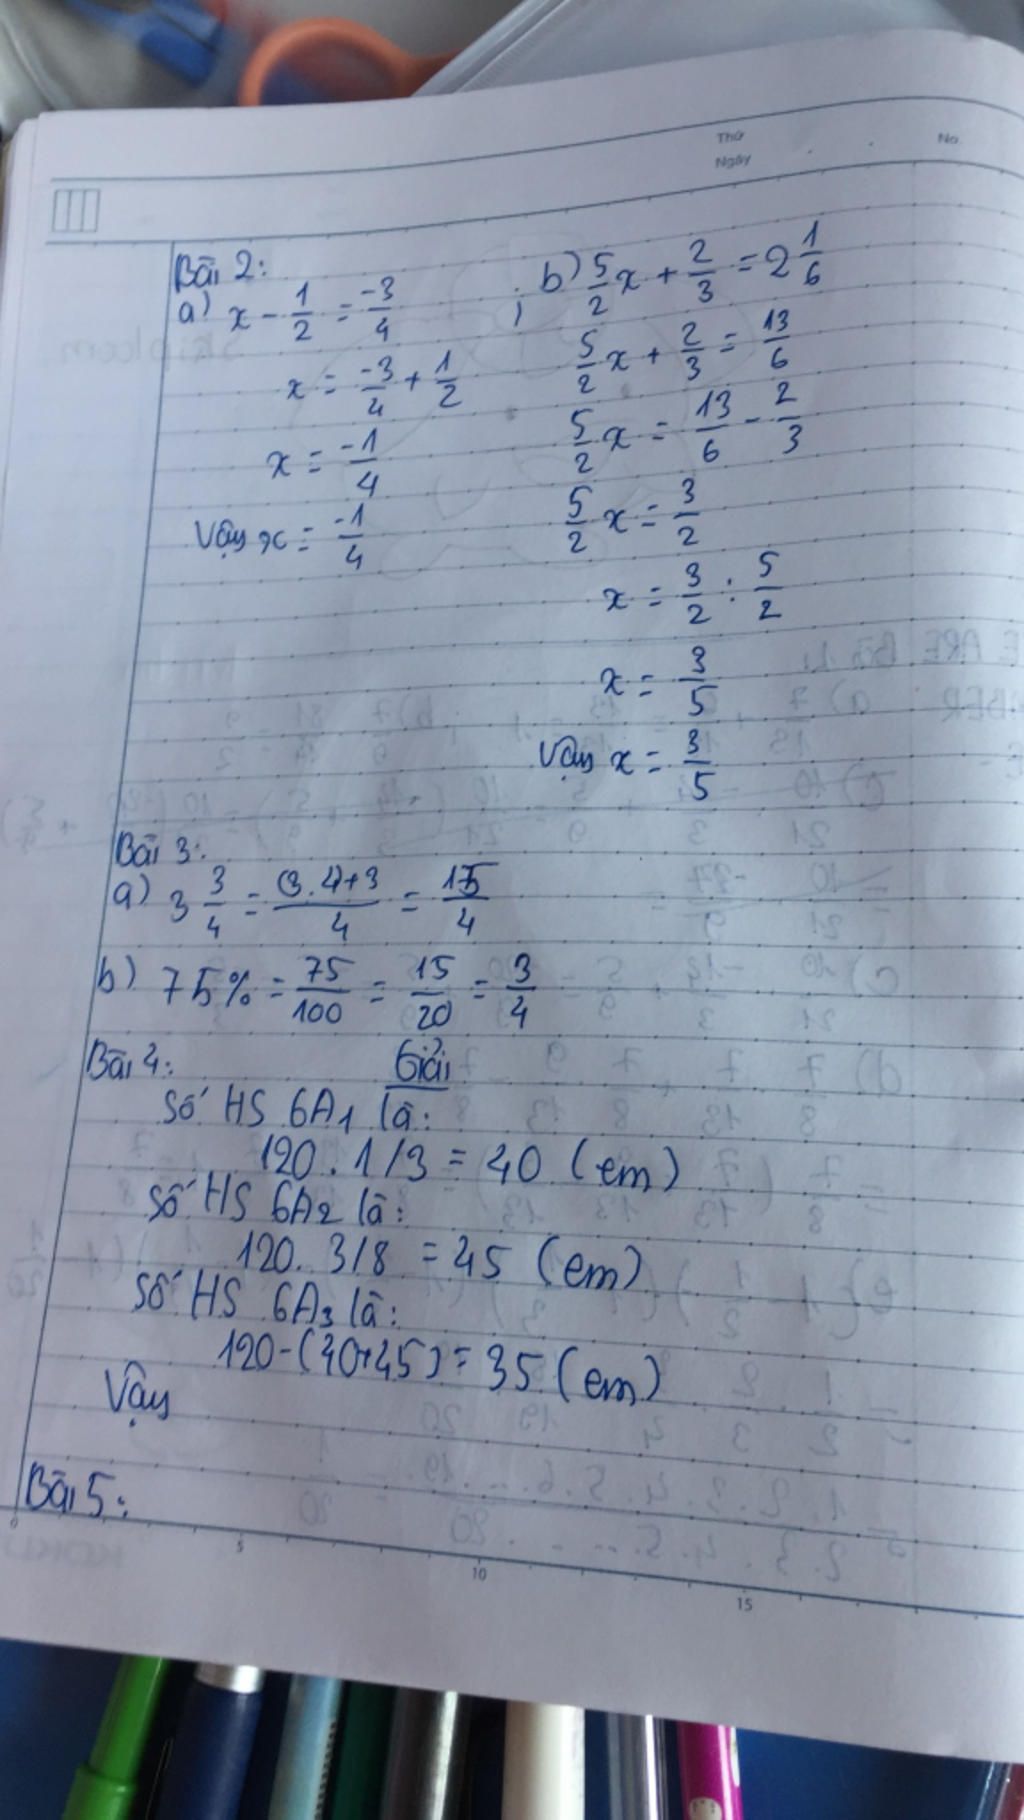 Thứ
Ngày
No.
Bài 2:
a) x - 1/2 = -3/4 ; b) 5/2 x + 2/3 = 2 1/6
x = -3/4 + 1/2
5/2 x + 2/3 = 13/6
x = -1/4
5/2 x = 13/6 - 2/3
Vậy x = -1/4
5/2 x = 3/2
x = 3/2 : 5/2
x = 3/5
Vậy x = 3/5
Bài 3:
a) 3 3/4 = (3.4)+3/4 = 15/4
b) 75% = 75/100 = 15/20 = 3/4
Bài 4: Giải
Số HS 6A1 là:
120 . 1/3 = 40 (em)
Số HS 6A2 là:
120. 3/8 = 45 (em)
Số HS 6A3 là:
120-(40+45) = 35 (em)
Vậy
Bài 5:
0 5 10 15